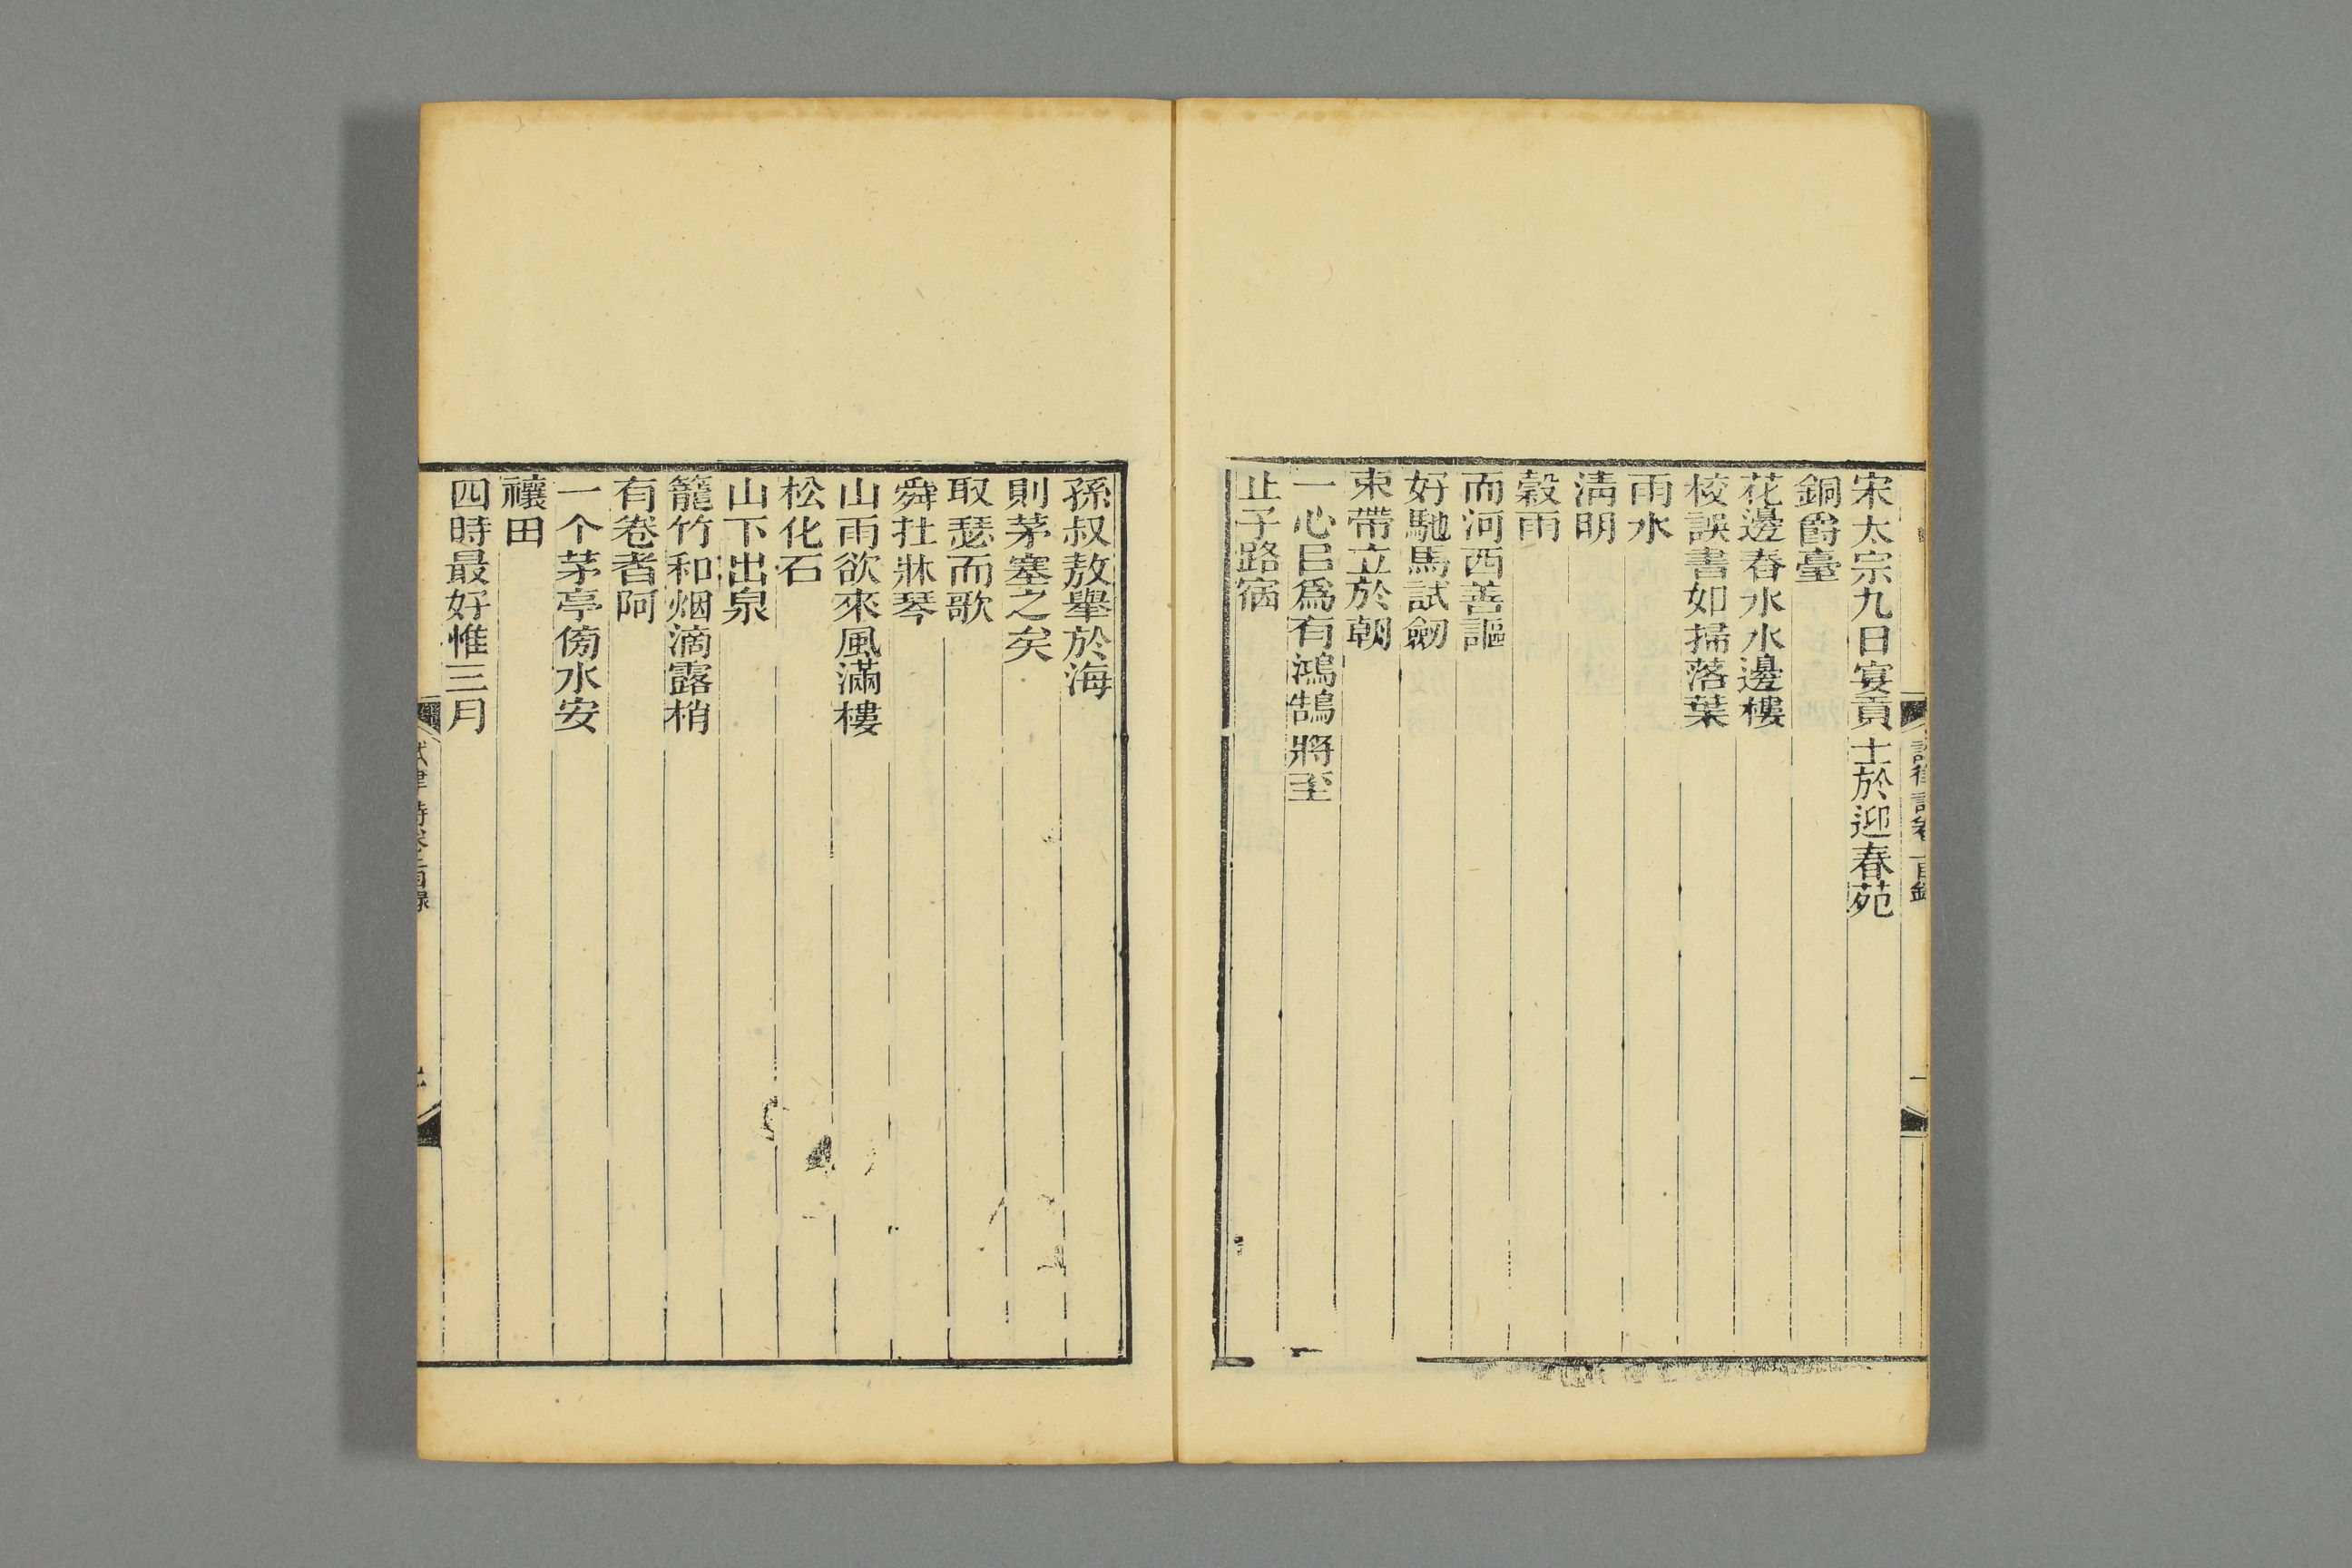 宋太宗九日宴貢士於迎春苑
銅爵臺
花邊春水水邊樓
校誤書如掃落葉
雨水
淸明
穀雨
而河西善謳
好馳馬試劒
束帶立於朝
一心㠯爲有鴻鵠將至
止子路宿
孫叔敖舉於海
則茅塞之矣
取瑟而歌
舜在牀琴
山雨欲來風滿樓
松化石
山下出泉
籠竹和烟滴露梢
有卷者阿
一个茅亭傍水安
禳田
四時最好惟三月
試律詩卷 目錄